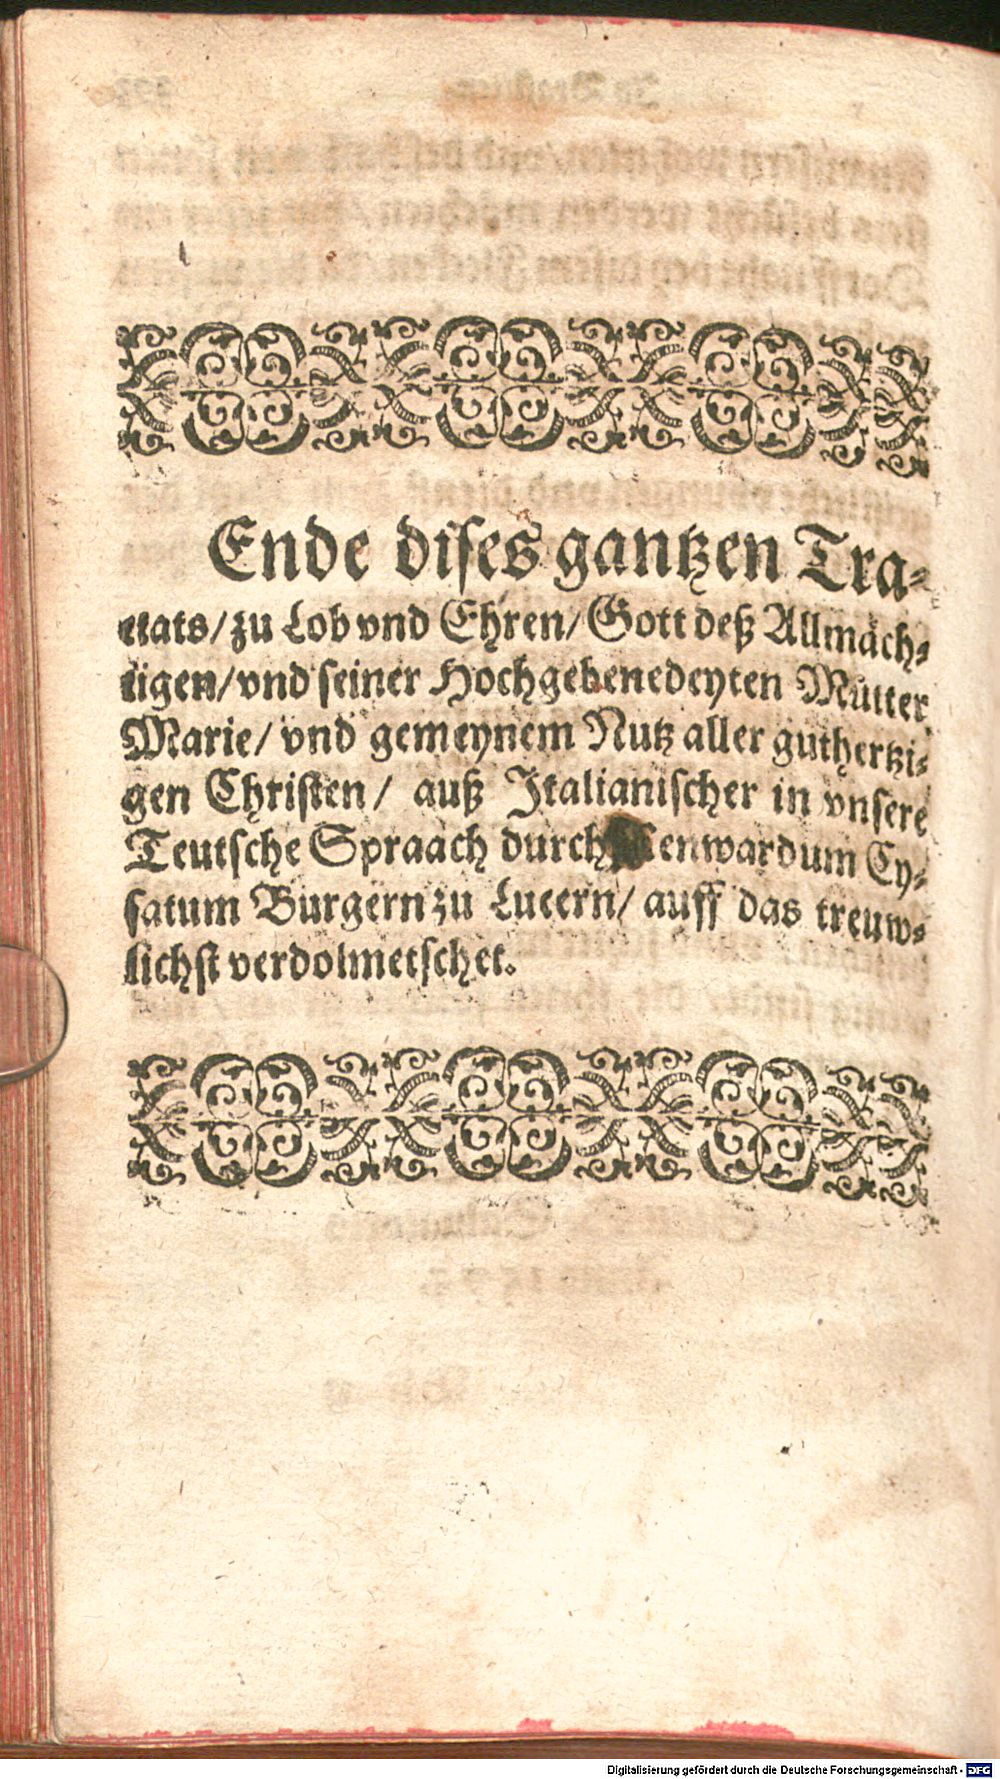 Ende dises gantzen Tra-
ctats/ zu Lob vnd Ehren/ Gott deß Allmäch-
tigen/ vnd seiner Hochgebenedeyten Mutter
Marie/ vnd gemeynem Nutz aller guthertzi-
gen Christen/ auß Italianischer in vnsere
Teutsche Spraach durch Cy-
satum Burgern zu Lucern/ auff das treuw-
lichst verdolmetschet.
Digitalisierung gefördert durch die Deutsche Forschungsgemeinschaft - DFG